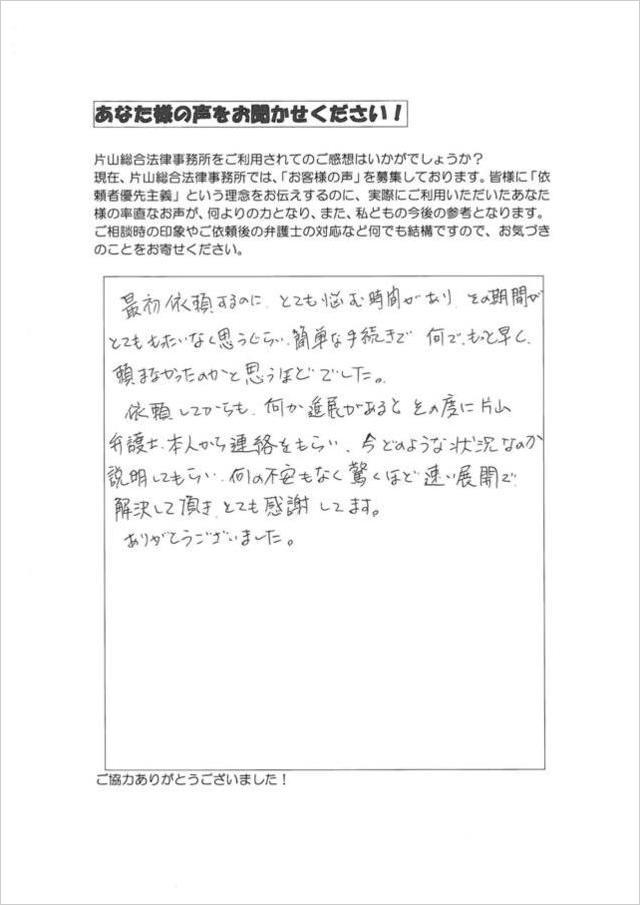 あなた様の声をお聞かせください!
片山総合法律事務所をご利用されてのご感想はいかがでしょうか?
現在、片山総合法律事務所では、「お客様の声」を募集しております。皆様に「依
頼者優先主義」という理念をお伝えするのに、実際にご利用いただいたあなた
様の率直なお声が、何よりの力となり、また、私どもの今後の参考となります。
ご相談時の印象やご依頼後の弁護士の対応など何でも結構ですので、お気づき
のことをお寄せください。
最初依頼するのに、とても悩む時間があり、その期間が
とてももったいなく思うぐらい、簡単な手続きで 何で、もっと早く、
頼まなかったのかと思うほどでした。
依頼してからも、何か進展があると その度に片山
弁護士、本人から連絡をもらい、今どのような状況なのか
説明してもらい、何の不安もなく驚くほど速い展開で
解決して頂き、とても感謝してます。
ありがとうございました。
ご協力ありがとうございました!